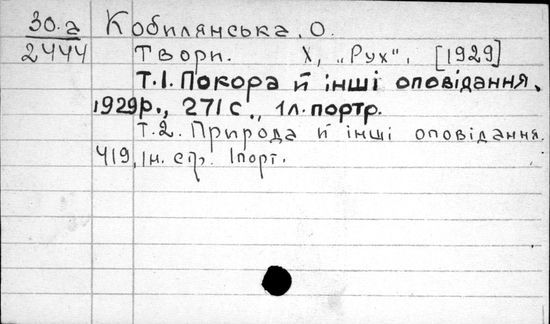 30.а Кобилянська, О.
2444 Твори. Х, „Рух", [1929]
Т.1. Покора й інші оповідання.
1929р., 271с., 1л.портр.
Т.2. Природа й інші оповідання.
419, Ін. ст. 1порт.